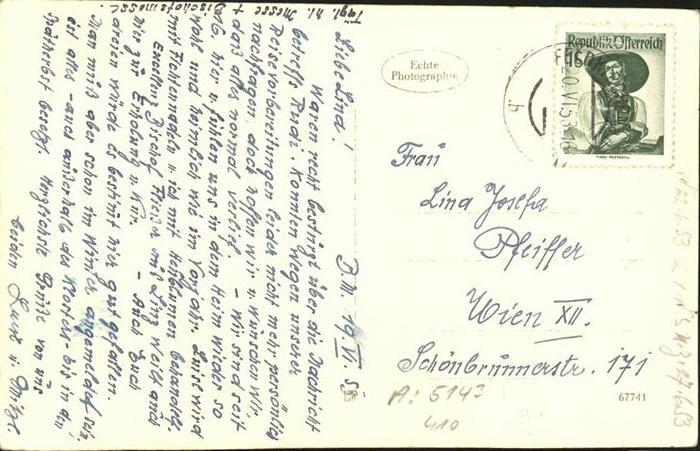 Tägl. hl. Messe +
Bischofsmesse.
Liebe Lina! B.M. 19. VI. 53
Waren recht bestürzt über die Nachricht
betreffs Rudi. Konnten wegen unserer
Reisevorbereitungen leider nicht mehr persönlich
nachfragen, doch hoffen wir u. wünschen wir,
daß alles normal verlief. – Wir sind seit
hier u. fühlen uns in dem Heim wieder so
wohl und heimlich wie im Vorjahr. Luise wird
mit Fichtennadeln u. ich mit Heublumen behandelt.
Exzellenz Bischof Fließer aus Linz weilt auch
hier zur Erholung u. Kur. – Auch Euch
dreien würde es bestimmt hier gut gefallen.
Man muß aber schon im Winter angemeldet sein,
ist alles – auch außerhalb des Klosters – bis in den
Spätherbst besetzt. Herzlichste Grüße von uns
beiden
Echte
Photographie
Republik Österreich
1.60
20.VI.53
TIROL PUSTERTAL
Frau
Lina Josefa
Pfeiffer
Wien XII.
Schönbrunnerstr. 171
A: 5143
410
67741